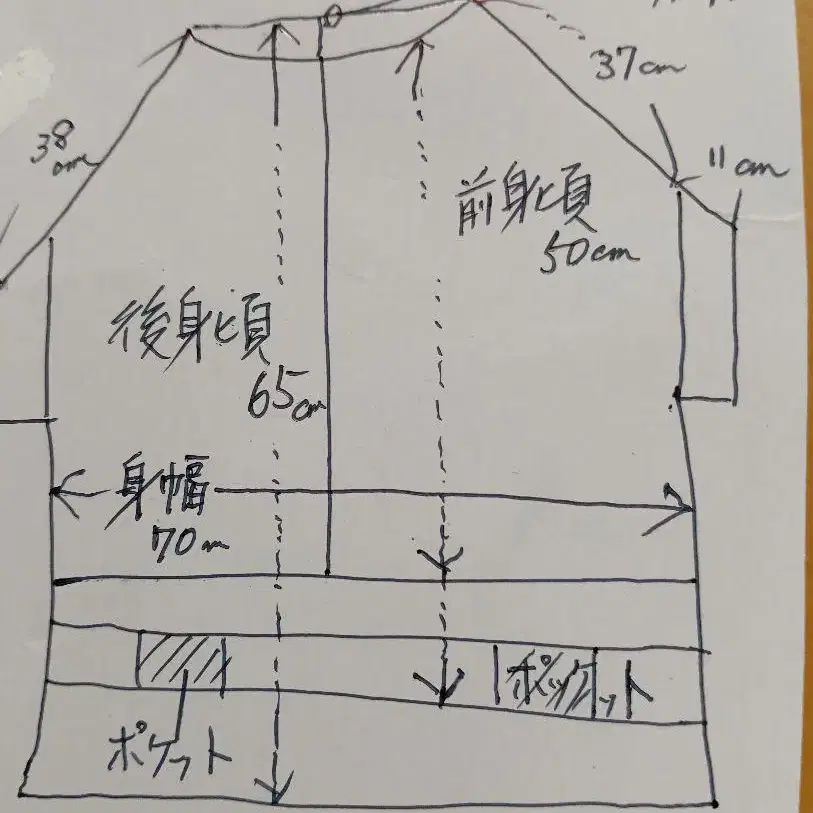 37cm
38cm
11cm
前身頃
50cm
後身頃
65cm
身幅
70cm
ポケット
ポケット